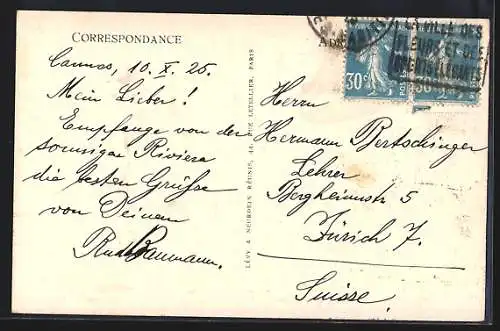 CORRESPONDANCE
Cannes, 10. X. 25.
Mein Lieber!
Empfange von der
sonnigen Riviera
die besten Grüsse
von Deinem
Baumann.
LÉVY & NEURDEIN RÉUNIS, 44, RUE LETELLIER, PARIS
30c
Herrn
Hermann Bertschinger
Lehrer
Bergheimstr 5
Zürich 7.
Suisse.